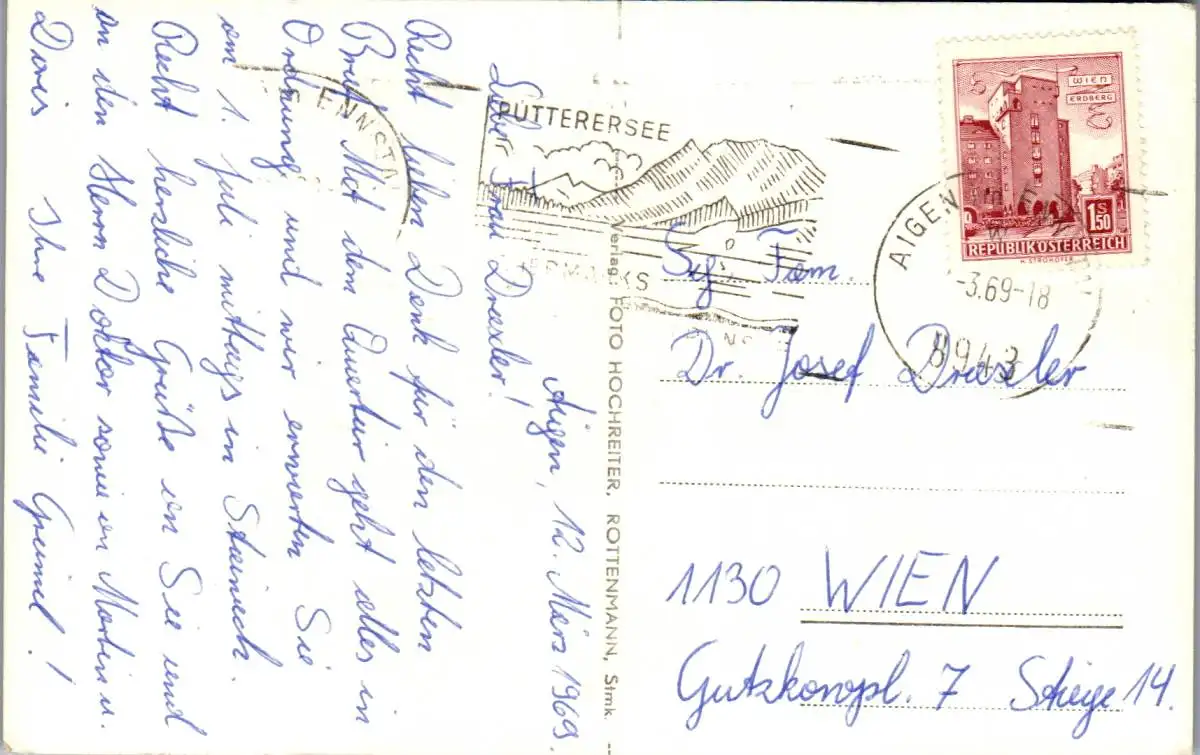 Aigen, 12. März 1969.
Liebe Frau Drexler!
Recht lieben Dank für den letzten
Brief. Mit dem Quartier geht alles in
Ordnung und wir erwarten Sie
am 1. Juli mittags in Stainach.
Recht herzliche Grüße an Sie und
an den Herrn Doktor sowie an Martin u.
Doris Ihre Familie
PUTTERERSEE
ENNSTAL
Verlag: FOTO HOCHREITER, ROTTENMANN, Stmk.
WIEN
ERDBERG
1 S 50
REPUBLIK ÖSTERREICH
H. STROHOFER
AIGEN im ENNSTAL
-3.69-18
8943
Fam.
Dr. Josef Drexler
1130 WIEN
Gutzkowpl. 7 Stiege 14.